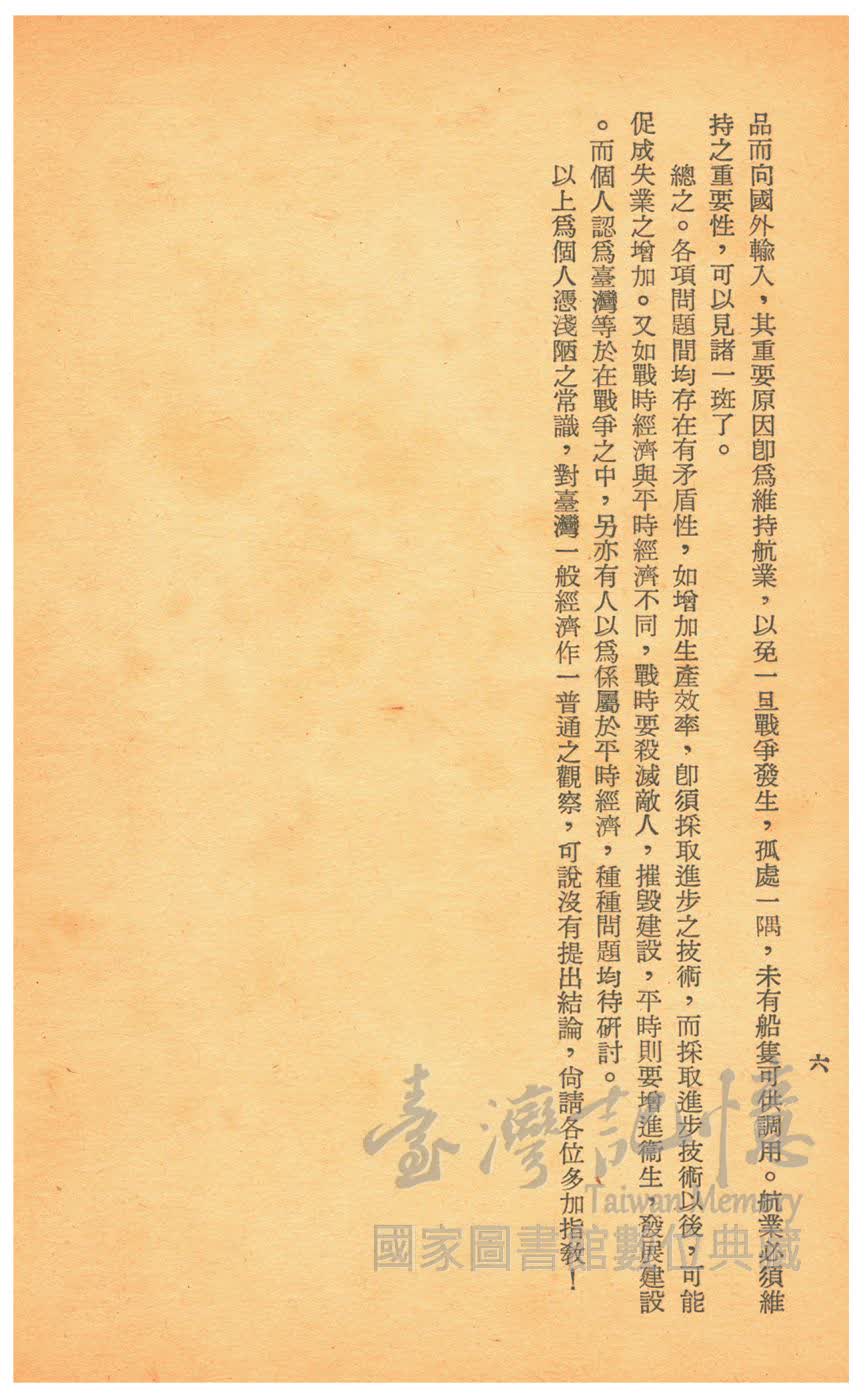 品而向國外輸入，其重要原因卽爲維持航業，以免一旦戰爭發生，孤處一隅，未有船隻可供調用。航業必須維
持之重要性，可以見諸一斑了。
總之。各項問題間均存在有矛盾性，如增加生產效率，卽須採取進步之技術，而採取進步技術以後，可能
促成失業之增加。又如戰時經濟與平時經濟不同，戰時要殺滅敵人，摧毀建設，平時則要增進衞生，發展建設
。而個人認爲臺灣等於在戰爭之中，另亦有人以爲係屬於平時經濟，種種問題均待硏討。
以上爲個人憑淺陋之常識，對臺灣一般經濟作一普通之觀察，可說沒有提出結論，尙請各位多加指敎！
六
臺灣記憶
Taiwan Memory
國家圖書館數位典藏